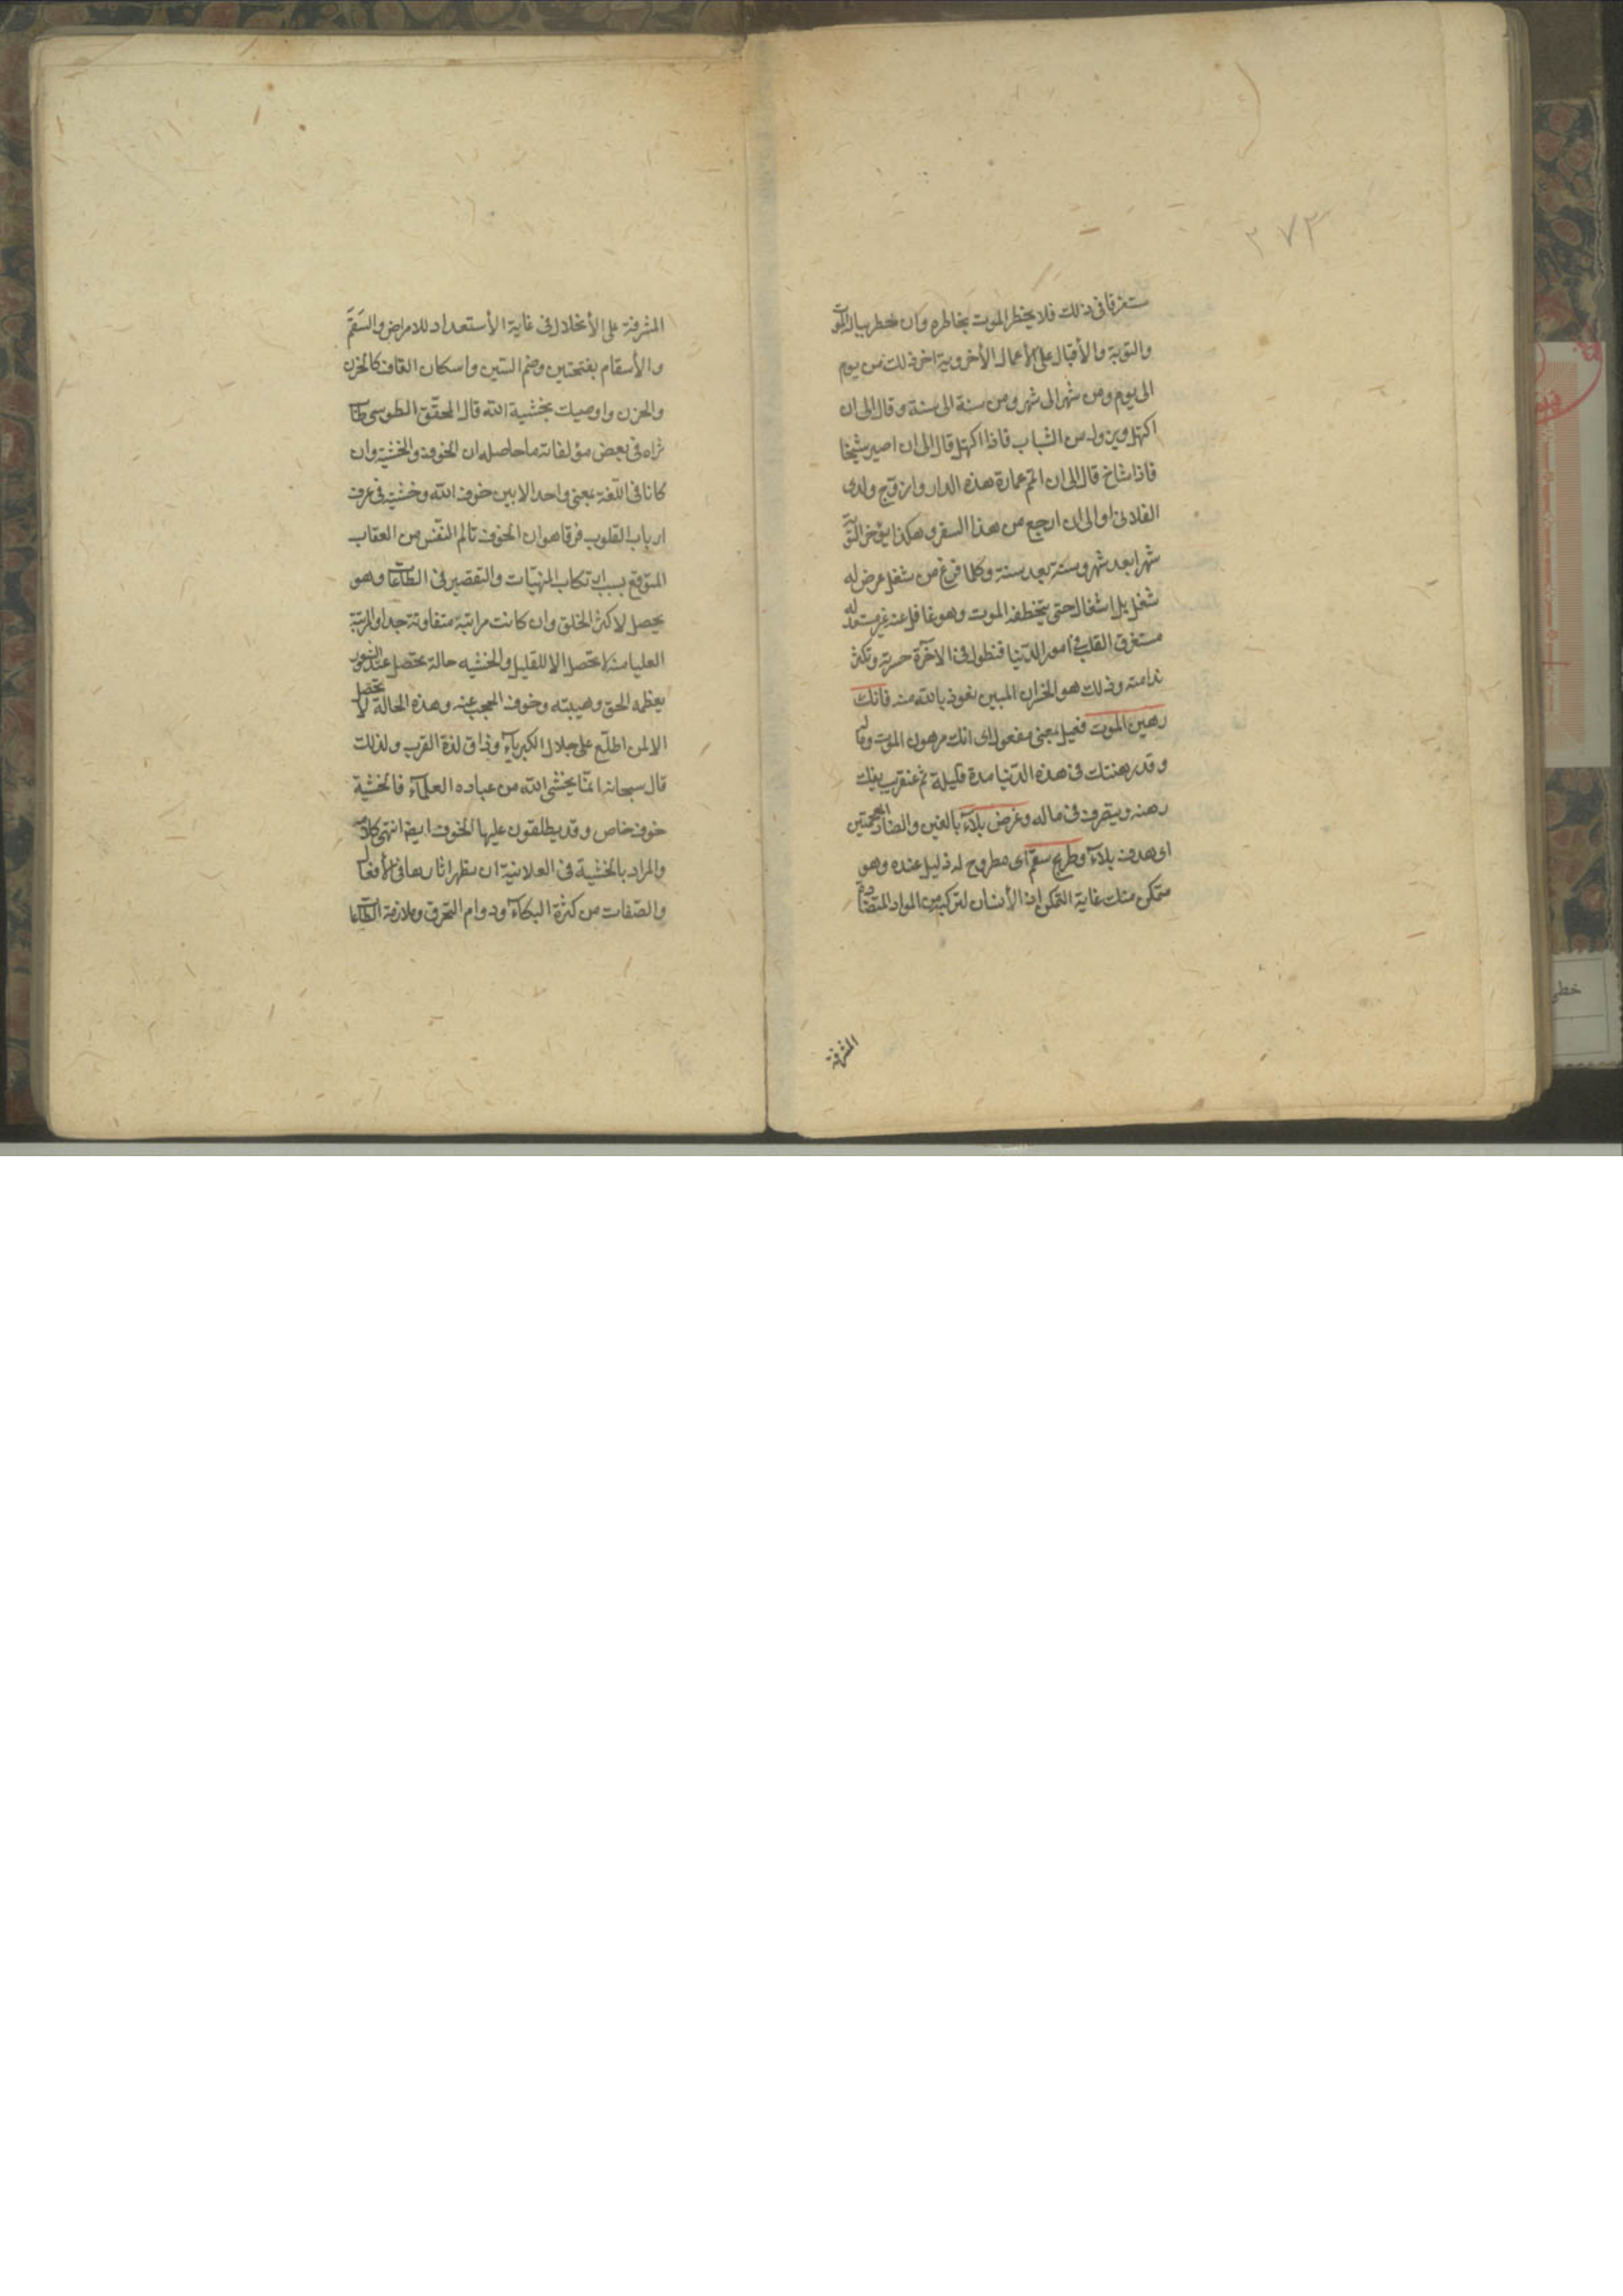 ۲۷۳
مستغرقا فی ذلك فلا يخطر الموت بخاطره وان خطر بباله الموت
والتوبة والأقبال على الأعمال الأخروية اخر ذلك من يوم
الى يوم ومن شهر الى شهر ومن سنة الى سنة وقال الى ان
اكتهل ويزول سن الشباب فاذا اكتهل قال الى ان اصير شيخا
فاذا شاخ قال الى ان اتم عمارة هذه الدار وازوّج ولدى
الفلانى او الى ان ارجع من هذا السفر وهكذا يؤخر التوبة
شهرا بعد شهر وسنة بعد سنة وكلما فرغ من شغل عرض له
شغل بل اشغال حتى يتخطفه الموت وهو غافل عنه غير مستعد له
مستغرق القلب فى امور الدّنيا فتطول فى الآخرة حسرته وتكثر
ندامته وذلك هو الخسران المبين نعوذ بالله منه فانك
رهين الموت فعيل بمعنى مفعول اى انك مرهون الموت وما
وقد رهنتك فى هذه الدّنيا مدة قليلة ثم عنقريب يفك
رهنه ويتصرف فى ماله وغرض بلاء بالغين والضاد المعجمتين
اى هدف بلاء وطريح سقم اى مطروح له ذليل عنده وهو
متمكن منك غاية التمكن اذ الأنسان لتركبه من المواد المتضادة
المشرفة
المشرفة على الأنحلال فى غاية الأستعداد للامراض والسَقَم
والأسقام بفتحتين وضم السّين واسكان القاف كالحَزَن
والحزن واوصيك بخشية الله قال المحقّق الطوسى طاب
ثراه فى بعض مؤلفاته ما حاصله ان الخوف والخشية وان
كانا فى اللّغة بمعنى واحد الا بين خوف الله وخشيته فى عرف
ارباب القلوب فرقا هو ان الخوف تالم النّفس من العقاب
المتوقع بسبب ارتكاب المنهيّات والتقصير فى الطّاعات وهو
يحصل لاكثر الخلق وان كانت مراتبة متفاوتة جدا والمرتبة
العليا منه لا تحصل الا للقليل والخشيه حالة تحصل عند الشعور
بعظمه الحق وهيبته وخوف الحجب عنه وهذه الحالة لا تحصل
الا لمن اطلّع على جلال الكبرياء وذاق لذة القرب ولذلك
قال سبحانه انمّا يخشى الله من عباده العلمآء فالخشية
خوف خاص وقد يطلقون عليها الخوف ايضا انتهى كلامه
والمراد بالخشية فى العلانية ان يظهر اثارها فى الأفعال
والصّفات من كثرة البكآء ودوام التحرق وملازمة الطّاعات
خطى